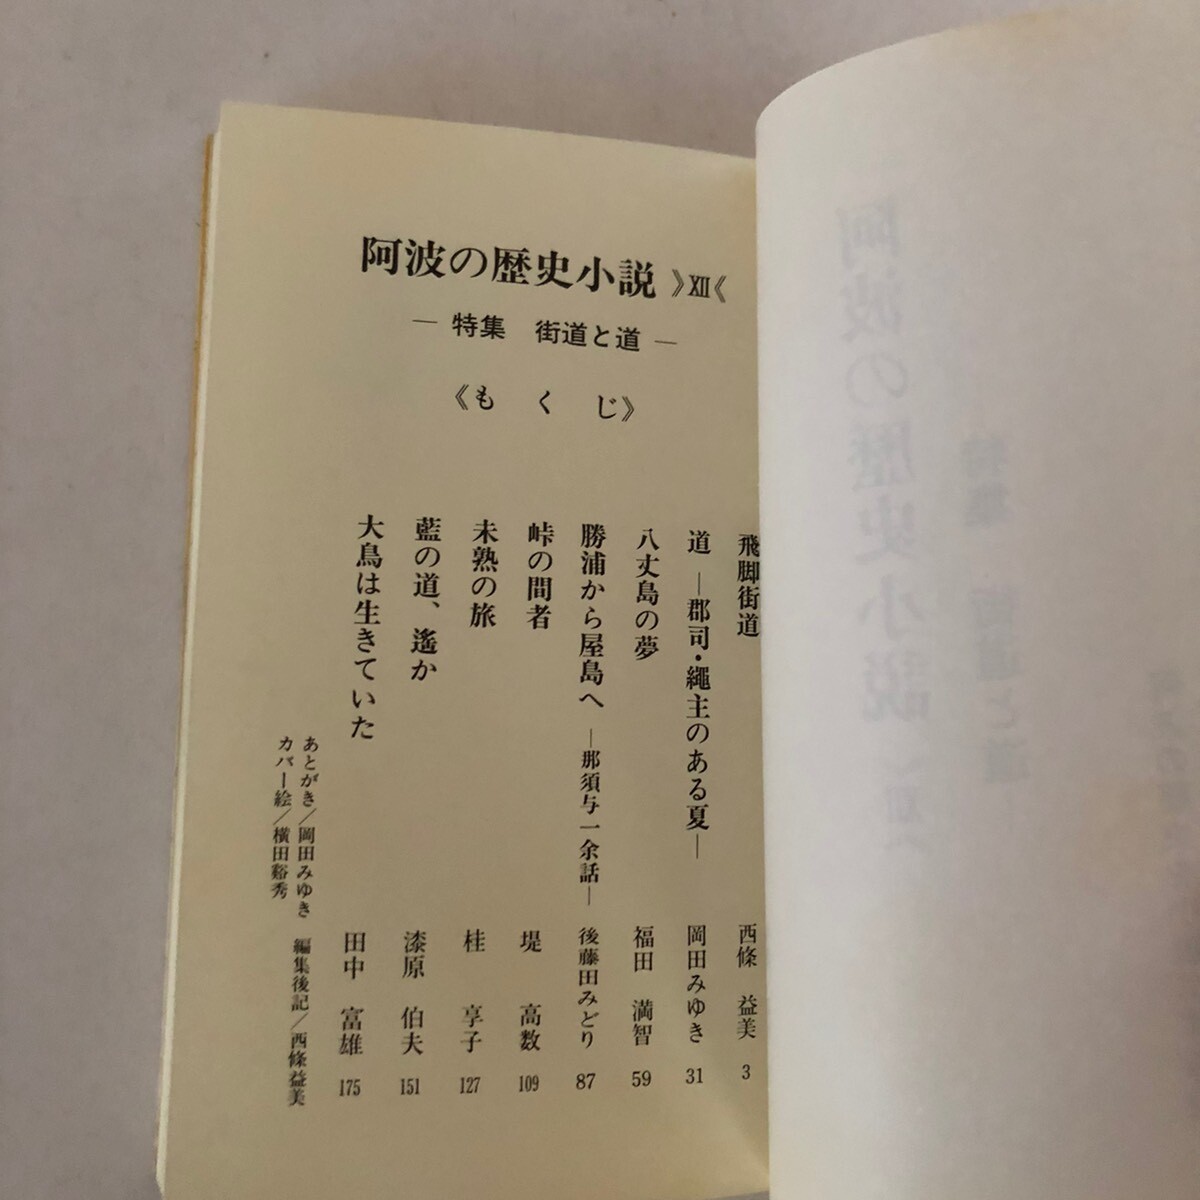 阿波の歴史小説 》XII《
― 特集　街道と道 ―
《もくじ》
飛脚街道　西條　益美　3
道　―郡司・繩主のある夏―　岡田みゆき　31
八丈島の夢　福田　満智　59
勝浦から屋島へ　―那須与一余話―　後藤田みどり　87
峠の間者　堤　高数　109
未熟の旅　桂　享子　127
藍の道、遙か　漆原　伯夫　151
大鳥は生きていた　田中　富雄　175
あとがき／岡田みゆき　編集後記／西條益美
カバー絵／横田谿秀